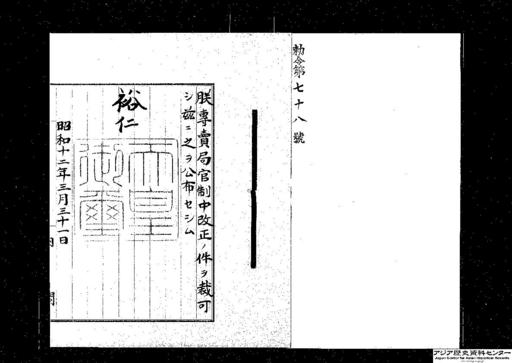 勅令第七十八號
朕專賣局官制中改正ノ件ヲ裁可
シ茲ニ之ヲ公布セシム
裕仁
天皇
御璽
昭和十二年三月三十一日
アジア歴史資料センター
Japan Center for Asian Historical Records